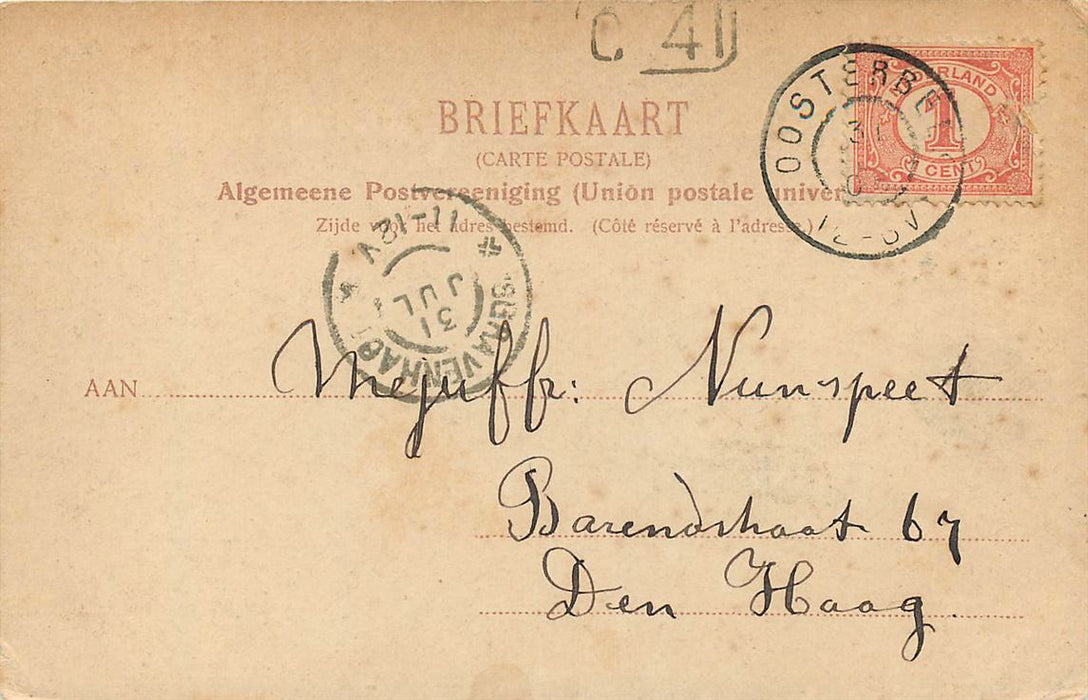 C 41
NEDERLAND
1
CENT
OOSTERBEEK
31
12-5V
BRIEFKAART
(CARTE POSTALE)
Algemeene Postvereeniging (Union postale univer
Zijde voor het adres bestemd. (Côté réservé à l'adresse.)
11-12V
31
JUL
'S GRAVENHAGE
AAN Mejuffr: Nunspeet
Barendstraat 67
Den Haag.